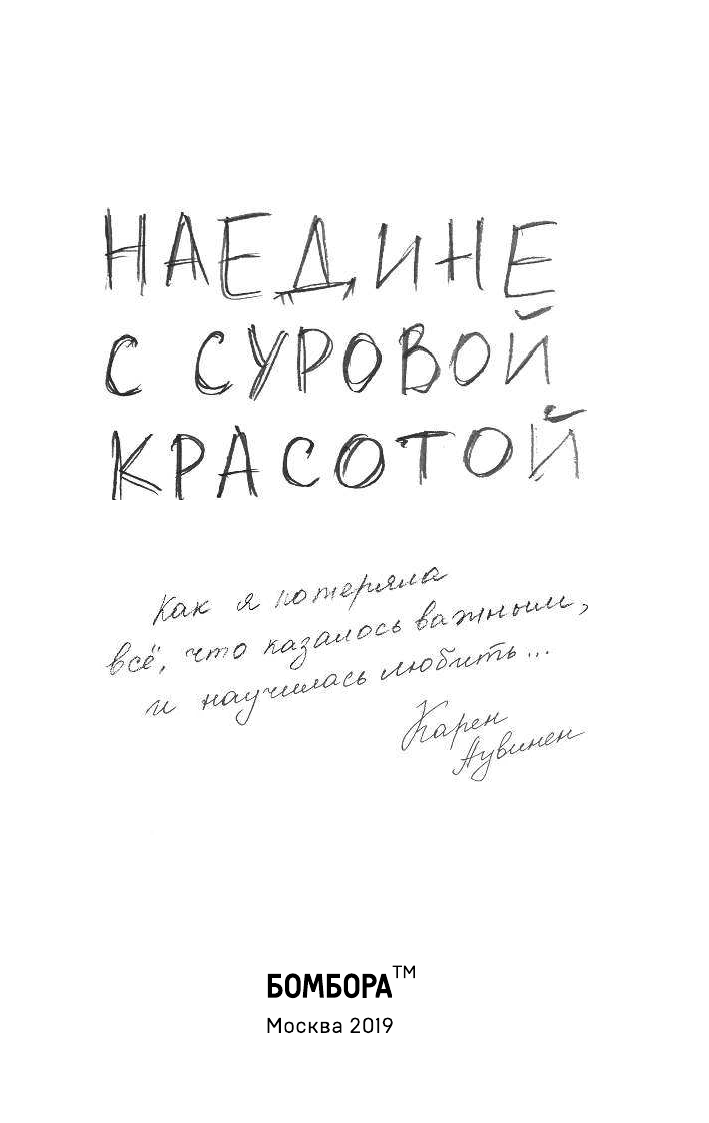 НАЕДИНЕ
С СУРОВОЙ
КРАСОТОЙ
Как я потеряла
всё, что казалось важным,
и научилась любить...
Карен
Аувинен
БОМБОРА™
Москва 2019